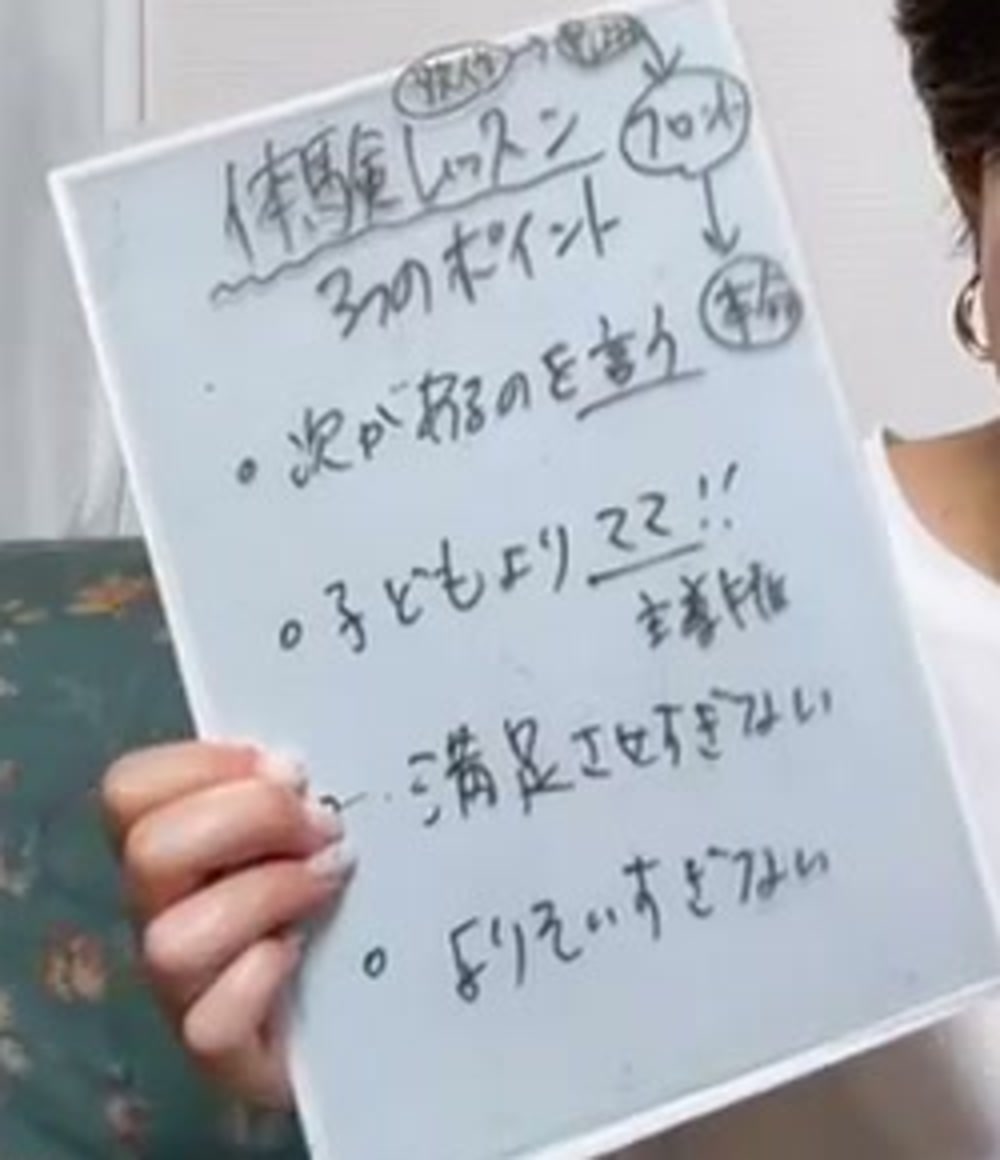 フロント
体験レッスン
3つのポイント
本命
次が有るのを言う
子どもよりママ!!
主導権
満足させすぎない
よりそいすぎない